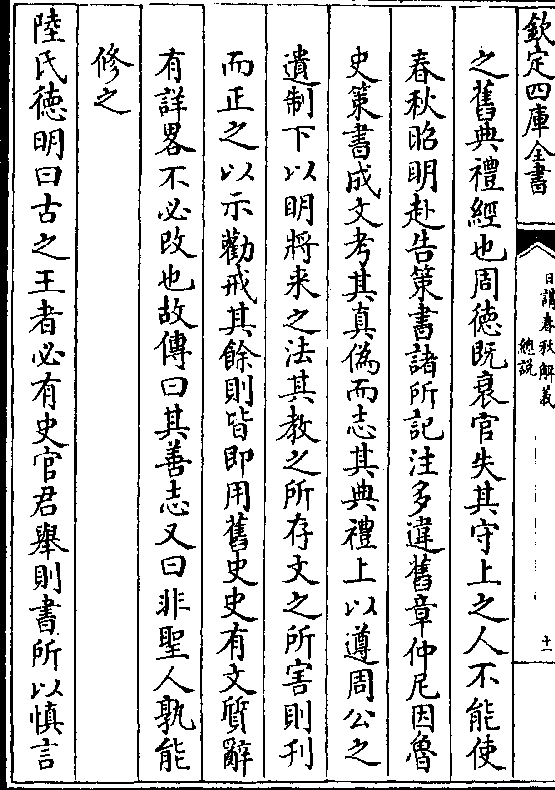 欽定四庫全書
日講春秋解義
總說
十一
之舊典禮經也周徳既衰官失其守上之人不能使
春秋昭明赴告策書諸所記注多違舊章仲尼因魯
史策書成文考其真僞而志其典禮上以遵周公之
遺制下以明將来之法其教之所存文之所害則刋
而正之以示勸戒其餘則皆即用舊史史有文質辭
有詳畧不必改也故傳曰其善志又曰非聖人孰能
修之
陸氏徳明曰古之王者必有史官君舉則書所以慎言